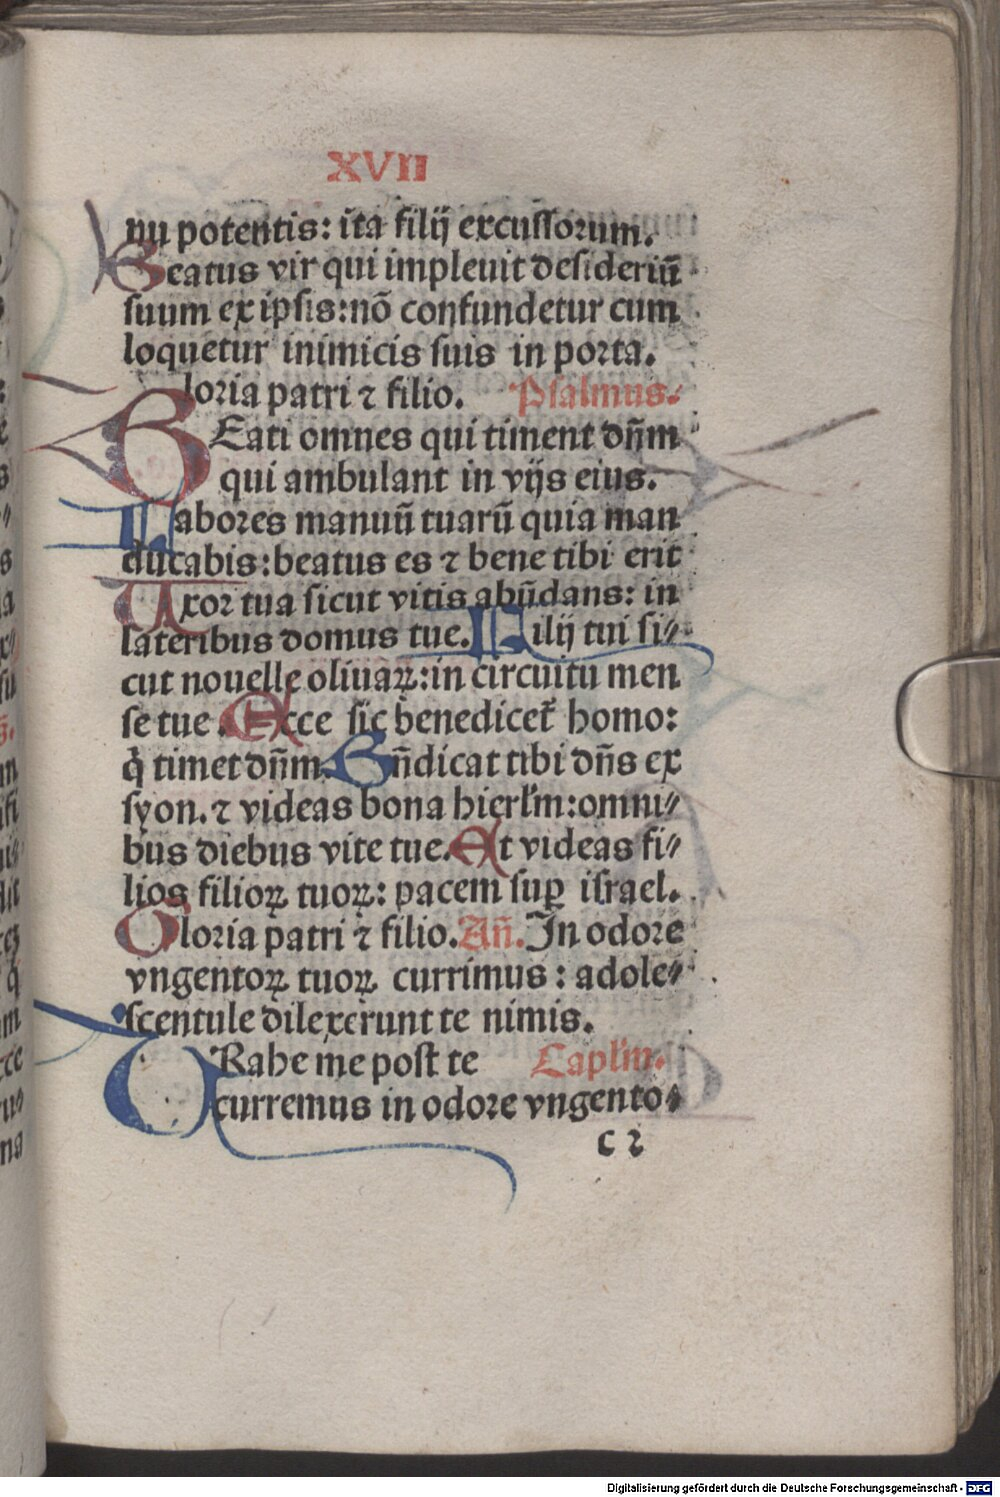 XVII
nu potentis: ita filij excussorum.
Beatus vir qui impleuit desideriũ
suum ex ipsis: nõ confundetur cum
loquetur inimicis suis in porta.
loria patri ⁊ filio. Psalmus.
BEati omnes qui timent dñm
qui ambulant in vijs eius.
Labores manuũ tuarũ quia man
ducabis: beatus es ⁊ bene tibi erit
Uxor tua sicut vitis abũdans: in
lateribus domus tue. Filij tui si⸗
cut nouelle oliuaꝝ: in circuitu men
se tue. Ecce sic benedicet᷑ homo:
q̇ timet dñm. Bñdicat tibi dñs ex
syon. ⁊ videas bona hierl'm: omni⸗
bus diebus vite tue. Et videas fi⸗
lios filioꝝ tuoꝝ: pacem suꝑ israel.
Gloria patri ⁊ filio. Añ. In odore
vngentoꝝ tuoꝝ currimus: adole⸗
scentule dilexerunt te nimis.
TRahe me post te Capl'm.
curremus in odore vngento⸗
c 2
Digitalisierung gefördert durch die Deutsche Forschungsgemeinschaft - DFG